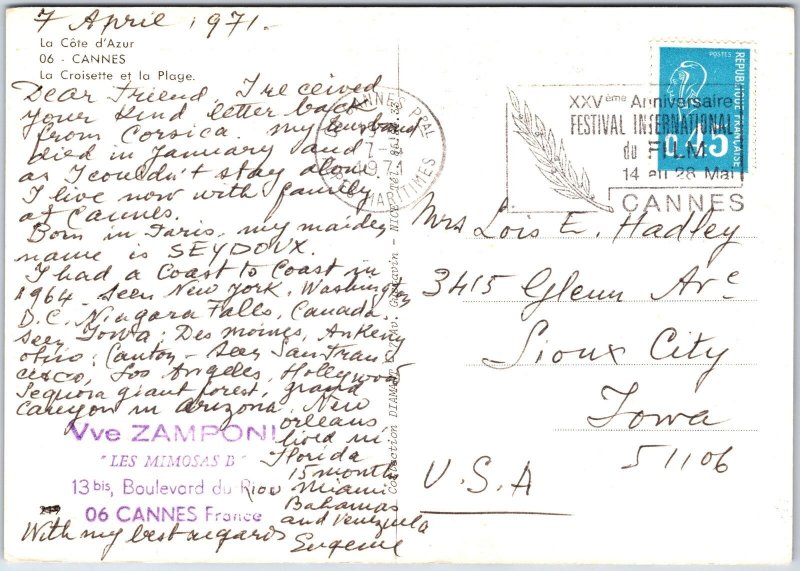 7 April 1971.
La Côte d'Azur
06 - CANNES
La Croisette et la Plage.
Dear Friend, I received
your kind letter back
from Corsica. my husband
died in January and
as I couldn't stay alone
I live now with family
at Cannes.
Born in Paris, my maiden
name is SEYDOUX.
I had a Coast to Coast in
1964. Seen New York, Washington
D.C. Niagara Falls, Canada.
Seen Iowa: Des Moines, Ankeny
Ohio: Canton - Seen San Fran
cisco, Los Angeles, Hollywood
Sequoia giant forest, grand
Canyon in Arizona. New
orleans
lived in
Florida
15 months
Miami
Bahamas
and Venezuela
With my best regards
Eugenie
Vve ZAMPONI
"LES MIMOSAS B"
13 bis, Boulevard du Riou
06 CANNES France
CANNES Pal
1971
MARITIMES
XXVème Anniversaire
FESTIVAL INTERNATIONAL
du FILM
14 au 28 Mai
CANNES
POSTES
REPUBLIQUE FRANÇAISE
0,45
Mrs Lois E. Hadley
3415 Glenn Ave
Sioux City
Iowa
51106
U.S.A